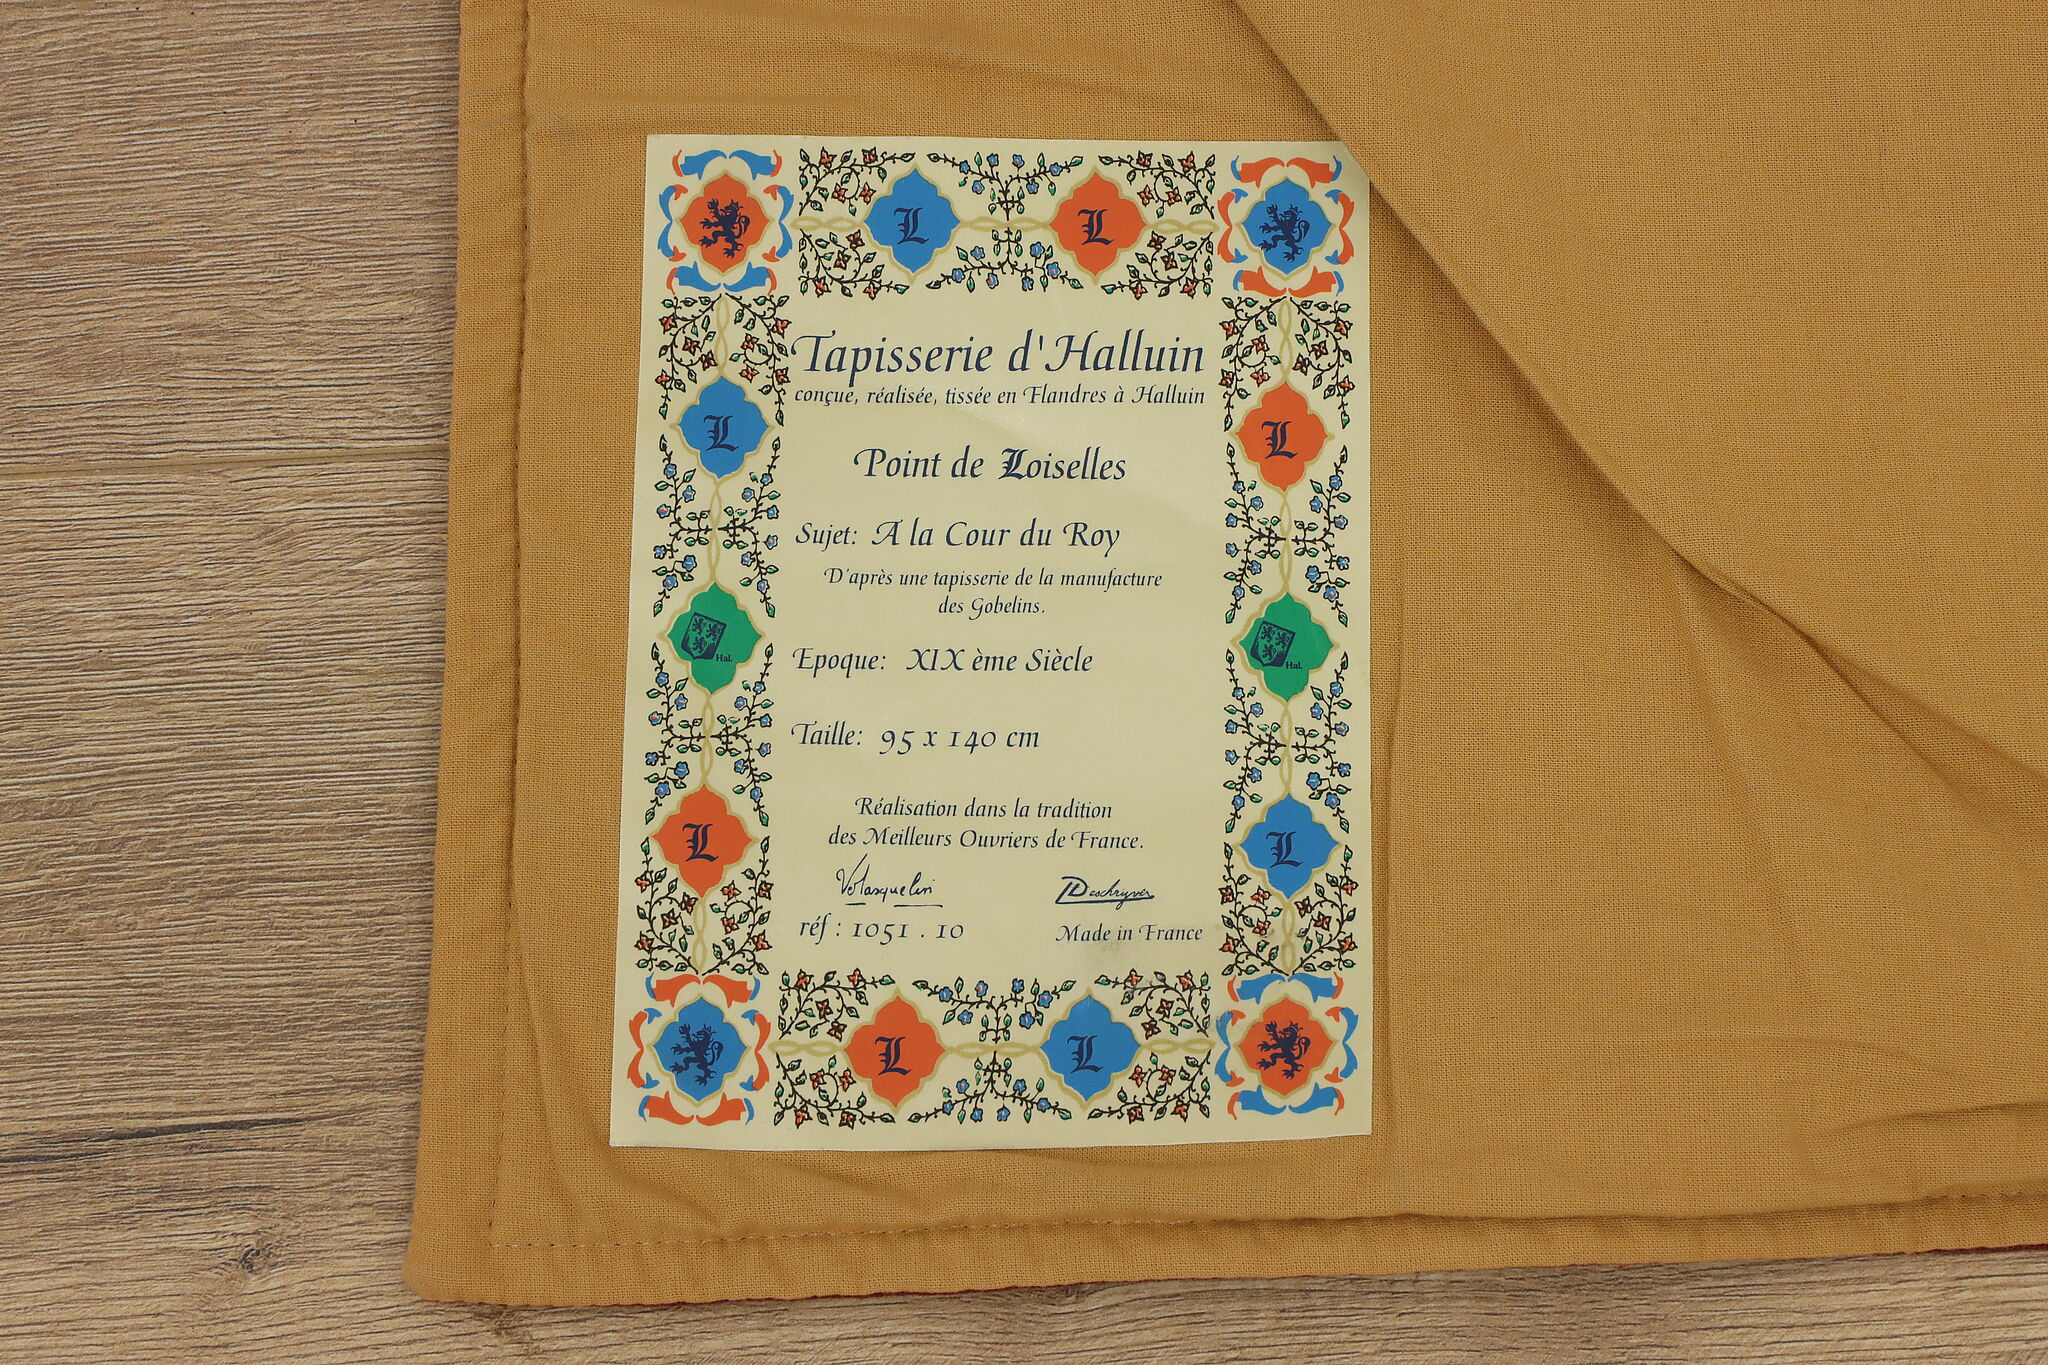 L L
Tapisserie d'Halluin
conçue, réalisée, tissée en Flandres à Halluin
L L
Point de Loiselles
Sujet: A la Cour du Roy
D'après une tapisserie de la manufacture
des Gobelins.
Hal. Hal.
Epoque: XIX ème Siècle
Taille: 95 x 140 cm
Réalisation dans la tradition
des Meilleurs Ouvriers de France.
L L
Deschryver
réf : 1051 . 10 Made in France
L L